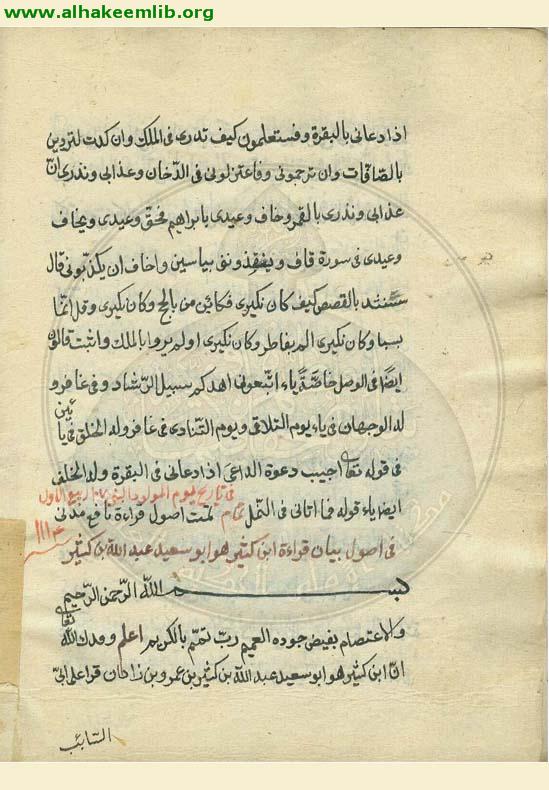 www.alhakeemlib.org
اذا دعانى بالبقرة و فستعلمون كيف نذرى فى الملك وان كدت لتردين
بالصافات وان ترجمونى وفاعتزلونى فى الدخان وعذابى ونذرى انّ
عذابى ونذرى بالقمر وخاف وعيدى بابراهيم فحقّ وعيدى ويخاف
وعيدى فى سورة قاف و ينقذونى بياسين واخاف ان يكذّبونى قال
سنشد بالقصص كيف كان نكيرى فكاين من بالحج وكان نكيرى وقل انّما
بسبا وكان نكيرى الم بفاطر وكان نكيرى اولم يروا بالملك واثبت قالون
ايضًا فى الوصل خاصّةً ياء اتّبعونى اهدكم سبيل الرّشاد و فى غافر و
له الوجهان فى ياء يوم التلاقى و يوم التّنادى فى غافر وله الخلف فى يا
ئين
فى قوله تعالى اجيب دعوة الداعى اذا دعانى فى البقرة وله الخلف
فى تاريخ يوم المولود النبى ربيع الاول
ايضا ياء قوله فما اتانى فى النّمل تمّت اصول قراءة نافع مدنى
تمام
١١١٣
فى اصول بيان قراءة ابن كثير هو ابو سعيد عبد الله بن كثير
بسم الله الرّحمن الرّحيم
والاعتصام بفيض جوده العميم ربّ تمّم بالكريم اعلم وفدك الله
تعالى
انّ ابن كثير هو ابو سعيد عبد الله بن كثير بن عمرو بن زاذان قرا على ابى
السّائب